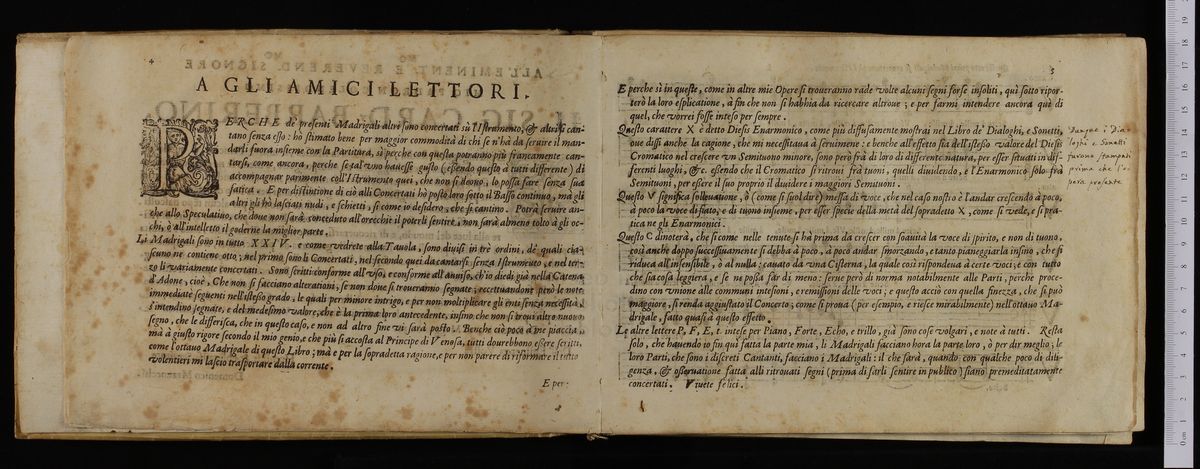 4
A GLI AMICI LETTORI.
PERCHE de' presenti Madrigali altri sono concertati sù l'Istrumento, & altri si can-
tano senza esso: hò stimato bene per maggior commodità di chi se n'hà da seruire il man-
darli fuora insieme con la Partitura, sì perche con questa potranno più francamente can-
tarsi, come ancora, perche se tal'vno hauesse gusto (essendo questo à tutti differente) di
accompagnar parimente coll'Istrumento quei, che non si deono, lo possa fare senza sua
fatica. E per distintione di ciò alli Concertati hò posto loro sotto il Basso continuo, ma gli
altri gli hò lasciati nudi, e schietti, si come io desidero, che si cantino. Potrà seruire an-
che allo Speculatiuo, che doue non sarà conceduto all'orecchie il poterli sentire, non sarà almeno tolto à gli oc-
chi, ò all'intelletto il goderne la miglior parte.
Li Madrigali sono in tutto XXIV. e come vedrete alla Tauola, sono diuisi in trè ordini, de' quali cia-
scuno ne contiene otto; nel primo sono li Concertati, nel secondo quei da cantarsi senza Istrumento, e nel ter-
zo li variamente concertati. Sono scritti conforme all'vso, e conforme all'auuiso, ch'io diedi già nella Catena
d'Adone, cioè, Che non si facciano alterationi, se non doue si troueranno segnate; eccettuandone però le note
immediate seguenti nell'istesso grado, le quali per minore intrigo, e per non moltiplicare gli enti senza necessità,
s'intendino segnate, e del medesimo valore, che è la prima loro antecedente, insino che non si troui altro nuouo
segno, che le differisca, che in questo caso, e non ad altro fine vi sarà posto. Benche ciò poco à me piaccia,
mà à giusto rigore secondo il mio genio, e che più si accosta al Principe di Venosa, tutti dourebbono essere scritti,
come l'ottauo Madrigale di questo Libro; mà e per la sopradetta ragione, e per non parere di riformare il tutto
volentieri mi lascio trasportare dalla corrente.
E per:
5
E perche sì in queste, come in altre mie Opere si troueranno rade volte alcuni segni forse insoliti, quì sotto ripor-
terò la loro esplicatione, à fin che non si habbia da ricercare altroue; e per farmi intendere ancora quì di
quel, che vorrei fosse inteso per sempre.
Questo carattere X è detto Diesis Enarmonico, come più diffusamente mostrai nel Libro de' Dialoghi, e Sonetti,
oue dissi anche la cagione, che mi necessitaua à seruirmene: e benche all'effetto sia dell'istesso valore del Diesis
Cromatico nel crescere vn Semituono minore, sono però frà di loro di differente natura, per esser situati in dif-
ferenti luoghi, &c. essendo che il Cromatico si ritroui frà tuoni, quelli diuidendo, e l'Enarmonico solo frà
Semituoni, per essere il suo proprio il diuidere i maggiori Semituoni.
Questo V significa solleuatione, ò (come si suol dire) messa di voce, che nel caso nostro è l'andar crescendo à poco,
à poco la voce di fiato, e di tuono insieme, per esser specie della metà del sopradetto X, come si vede, e si pra-
tica ne gli Enarmonici.
Questo C dinoterà, che si come nelle tenute si hà prima da crescer con soauità la voce di spirito, e non di tuono,
così anche doppo successiuamente si debba à poco, à poco andar smorzando, e tanto pianeggiarla insino, che si
riduca all'insensibile, ò al nulla: cauato da vna Cisterna, la quale così rispondeua à certe voci; e con tutto
che sia cosa leggiera, e se ne possa far di meno: serue però di norma notabilmente alle Parti, perche proce-
dino con vnione alle communi intesioni, e remissioni delle voci; e questo acciò con quella finezza, che si può
maggiore, si renda aggiustato il Concerto; come si proua (per esempio, e riesce mirabilmente) nell'ottauo Ma-
drigale, fatto quasi à questo effetto.
Le altre lettere P, F, E, t. intese per Piano, Forte, Echo, e trillo, già sono cose volgari, e note à tutti. Resta
solo, che hauendo io fin quì fatta la parte mia, li Madrigali facciano hora la parte loro, ò per dir meglio; le
loro Parti, che sono i discreti Cantanti, facciano i Madrigali: il che farà, quando con qualche poco di dili-
genza, & osseruatione fatta alli ritrouati segni (prima di farli sentire in publico) siano premeditatamente
concertati. Viuete felici.
Dunque i Dia-
loghi e Sonetti
furono stampati
prima che l'o-
pera presente.